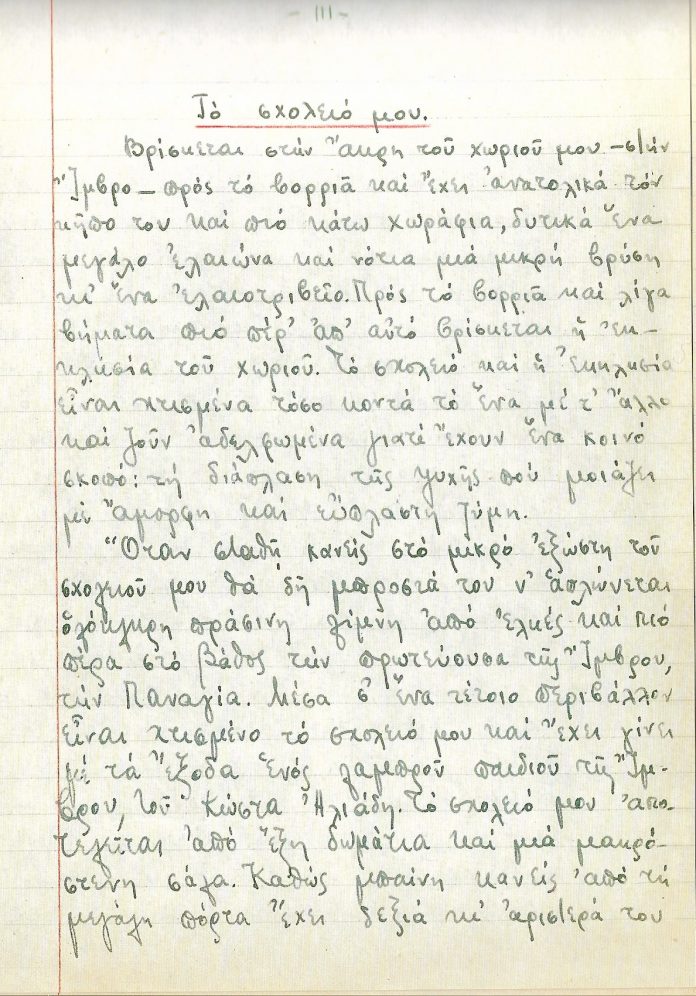 - III -
Τό σχολειό μου.
Βρίσκεται στήν ἄκρη τοῦ χωριοῦ μου – στήν
Ἴμβρο – πρός τό βορριᾶ καί ἔχει ἀνατολικά τόν
κῆπο του καί πιό κάτω χωράφια, δυτικά ἕνα
μεγάλο ἐλαιώνα καί νότια μιά μικρή βρύση
κι' ἕνα ἐλαιοτριβεῖο. Πρός τό βορριᾶ καί λίγα
βήματα πιό πέρ' ἀπ' αὐτό βρίσκεται ἡ ἐκ-
κλησία τοῦ χωριοῦ. Τό σχολειό καί ἡ ἐκκλησία
εἶναι χτισμένα τόσο κοντά τό ἕνα μέ τ' ἄλλο
καί ζοῦν ἀδελφωμένα γιατί ἔχουν ἕνα κοινό
σκοπό: τή διάπλαση τῆς ψυχῆς πού μοιάζει
μέ ἄμορφη καί εὔπλαστη ζύμη.
Ὅταν σταθῆ κανείς στό μικρό ἐξώστη τοῦ
σχολειοῦ μου θά δῆ μπροστά του ν' ἁπλώνεται
ὁλόκληρη πράσινη λίμνη ἀπό ἐλιές καί πιό
πέρα στό βάθος τήν πρωτεύουσα τῆς Ἴμβρου,
τήν Παναγία. Μέσα σ' ἕνα τέτοιο περιβάλλον
εἶναι χτισμένο τό σχολειό μου καί ἔχει γίνει
μέ τά ἔξοδα ἑνός λαμπροῦ παιδιοῦ τῆς Ἴμ-
βρου, τοῦ Κώστα Ἠλιάδη. Τό σχολειό μου ἀπο-
τελεῖται ἀπό ἕξη δωμάτια καί μιά μακρό-
στενη σάλα. Καθώς μπαίνη κανείς ἀπό τή
μεγάλη πόρτα ἔχει δεξιά κι' ἀριστερά του